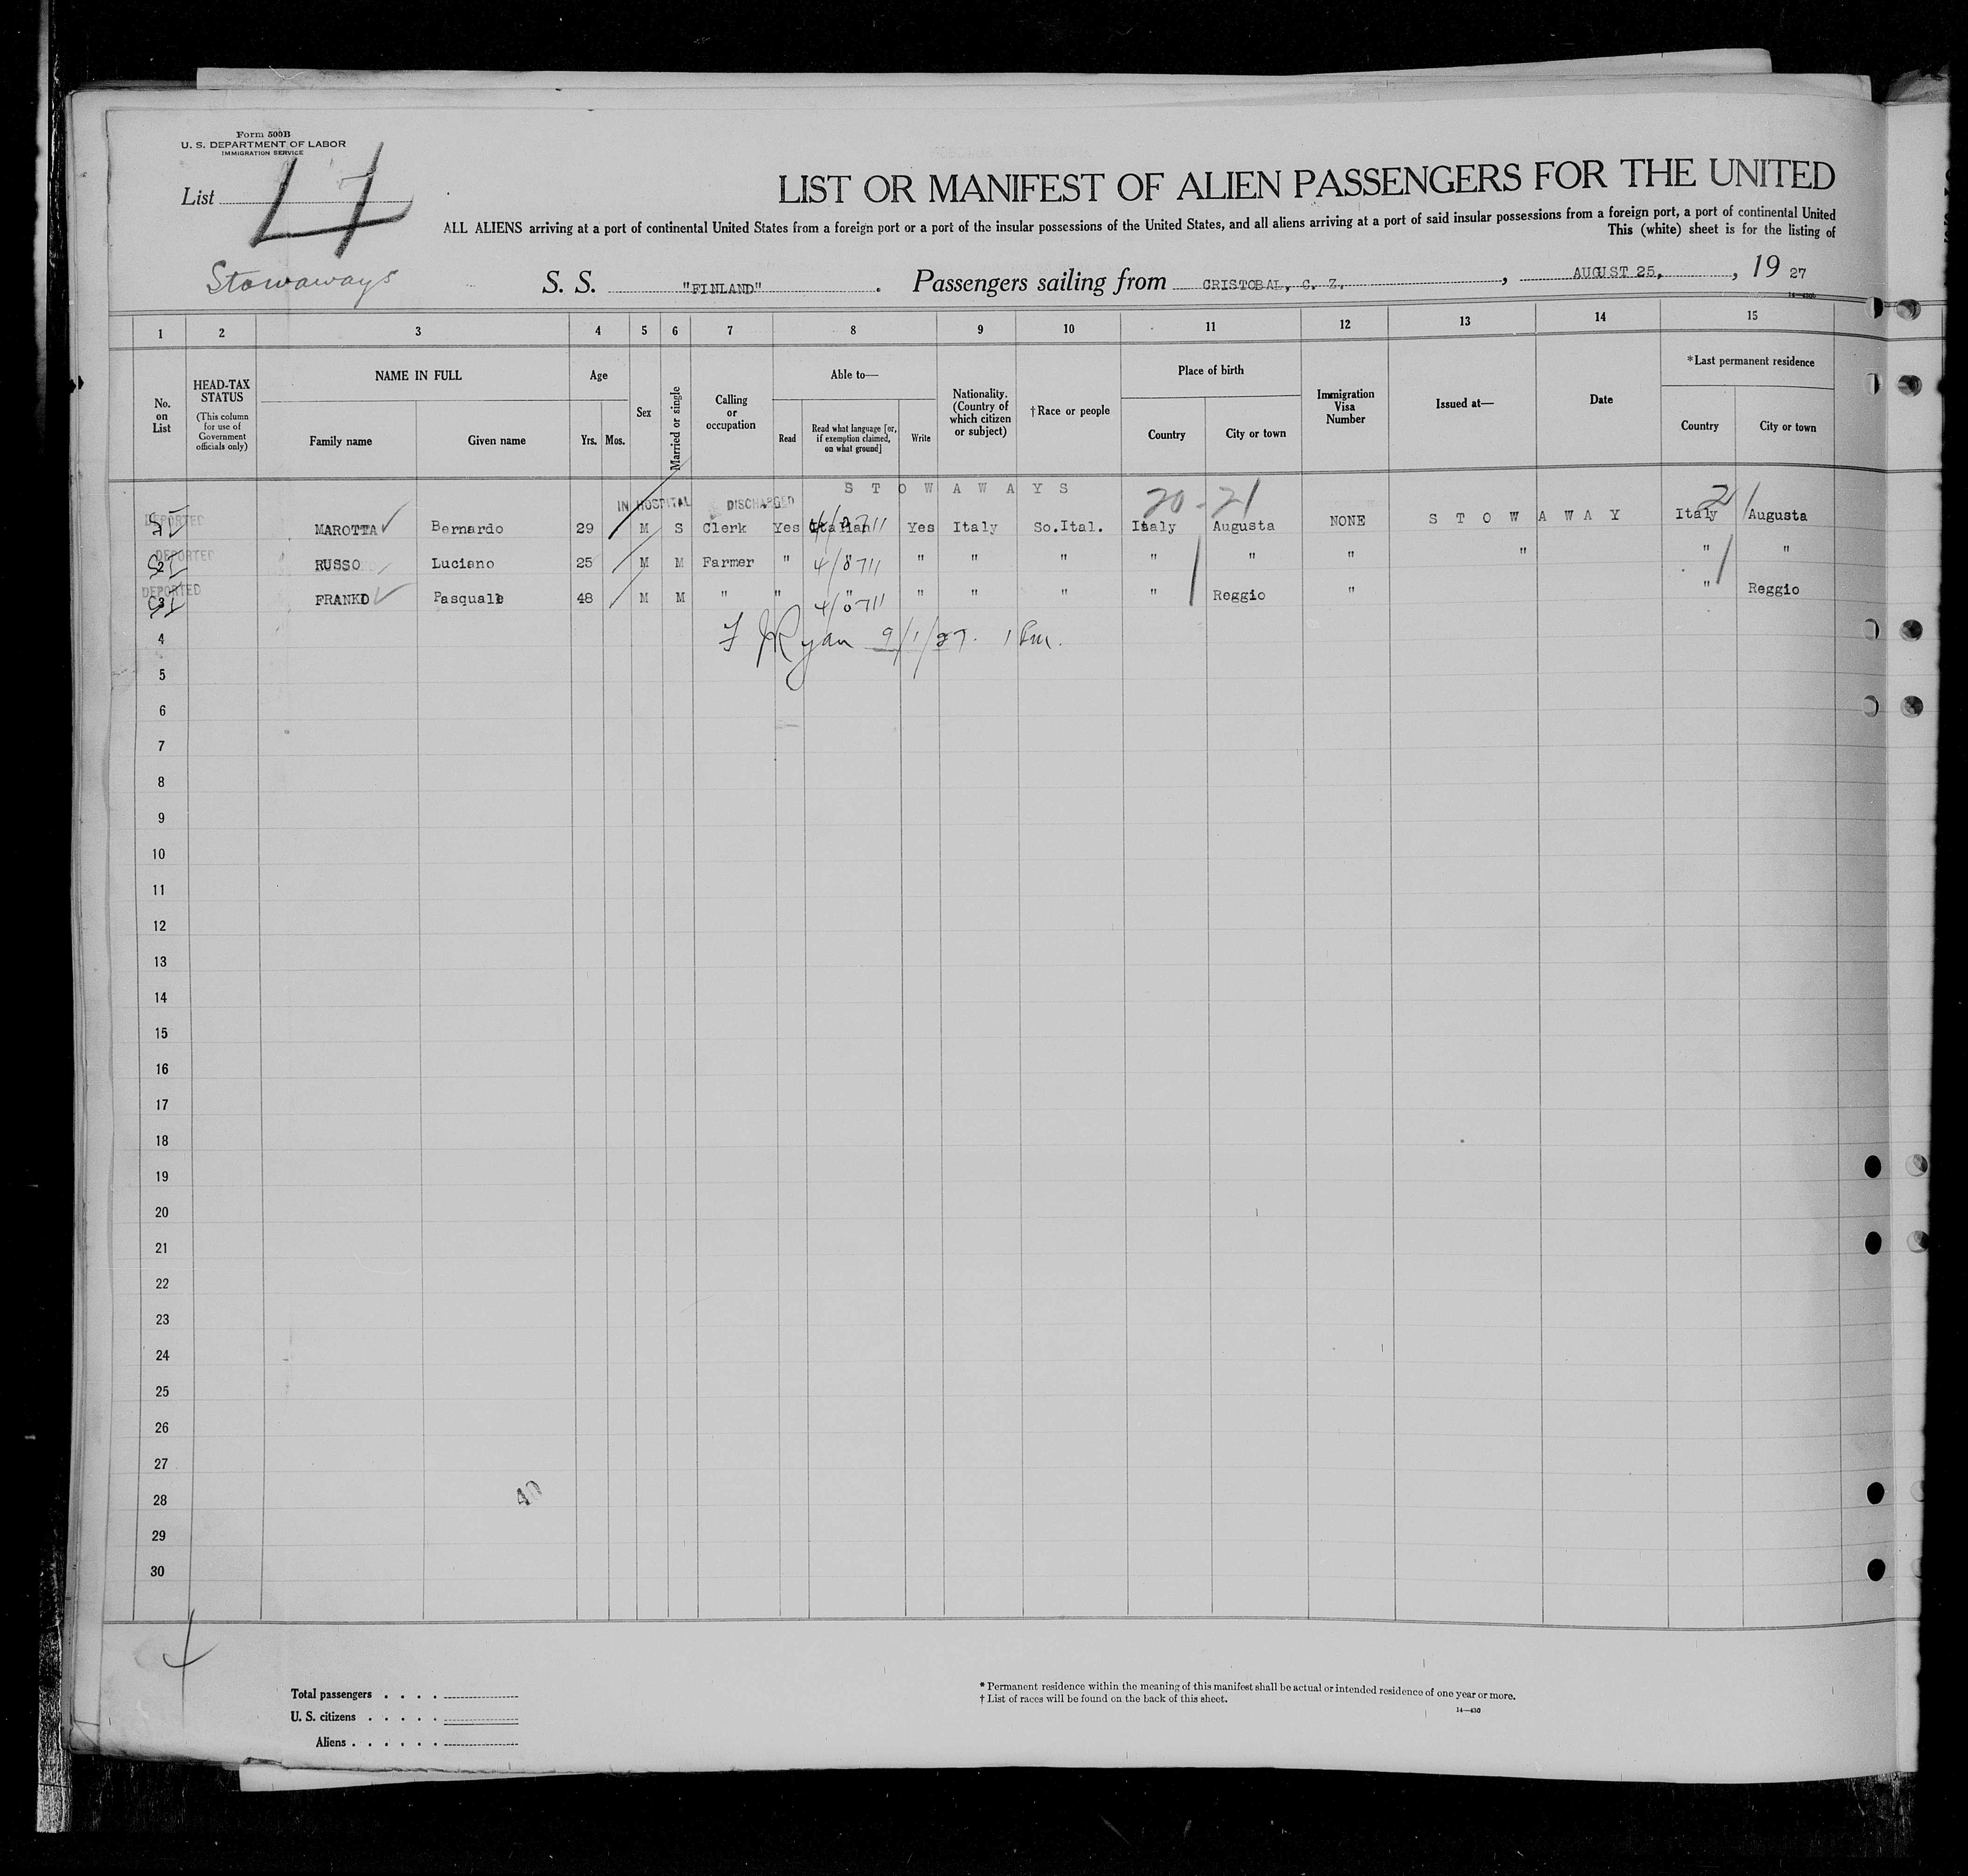 Form 500B
U. S. DEPARTMENT OF LABOR
IMMIGRATION SERVICE
List 17
LIST OR MANIFEST OF ALIEN PASSENGERS FOR THE UNITED
ALL ALIENS arriving at a port of continental United States from a foreign port or a port of the insular possessions of the United States, and all aliens arriving at a port of said insular possessions from a foreign port, a port of continental United
This (white) sheet is for the listing of
Stowaways
S. S. "FINLAND" . Passengers sailing from CRISTOBAL, C. Z. , AUGUST 25, , 19 27
1 2 3 4 5 6 7 8 9 10 11 12 13 14 15
No. on List
HEAD-TAX STATUS
(This column for use of Government officials only)
NAME IN FULL
Family name Given name
Age
Yrs. Mos.
Sex
Married or single
Calling or occupation
Able to—
Read
Read what language [or, if exemption claimed, on what ground]
Write
Nationality. (Country of which citizen or subject)
†Race or people
Place of birth
Country City or town
Immigration Visa Number
Issued at—
Date
*Last permanent residence
Country City or town
S T O W A W A Y S
IN HOSPITAL DISCHARGED 20 - 21 21
DEPORTED
1 MAROTTA Bernardo 29 M S Clerk Yes Italian Yes Italy So.Ital. Italy Augusta NONE S T O W A W A Y Italy Augusta
DEPORTED
2 RUSSO Luciano 25 M M Farmer " " " " " " " " " " "
DEPORTED
3 FRANKO Pasquale 48 M M " " " " " " " Reggio " " Reggio
F J Ryan 9/1/27. 1 Pm.
4
5
6
7
8
9
10
11
12
13
14
15
16
17
18
19
20
21
22
23
24
25
26
27
28
29
30
40
Total passengers . . . .
U. S. citizens . . . . .
Aliens . . . . . .
* Permanent residence within the meaning of this manifest shall be actual or intended residence of one year or more.
† List of races will be found on the back of this sheet.
14—430